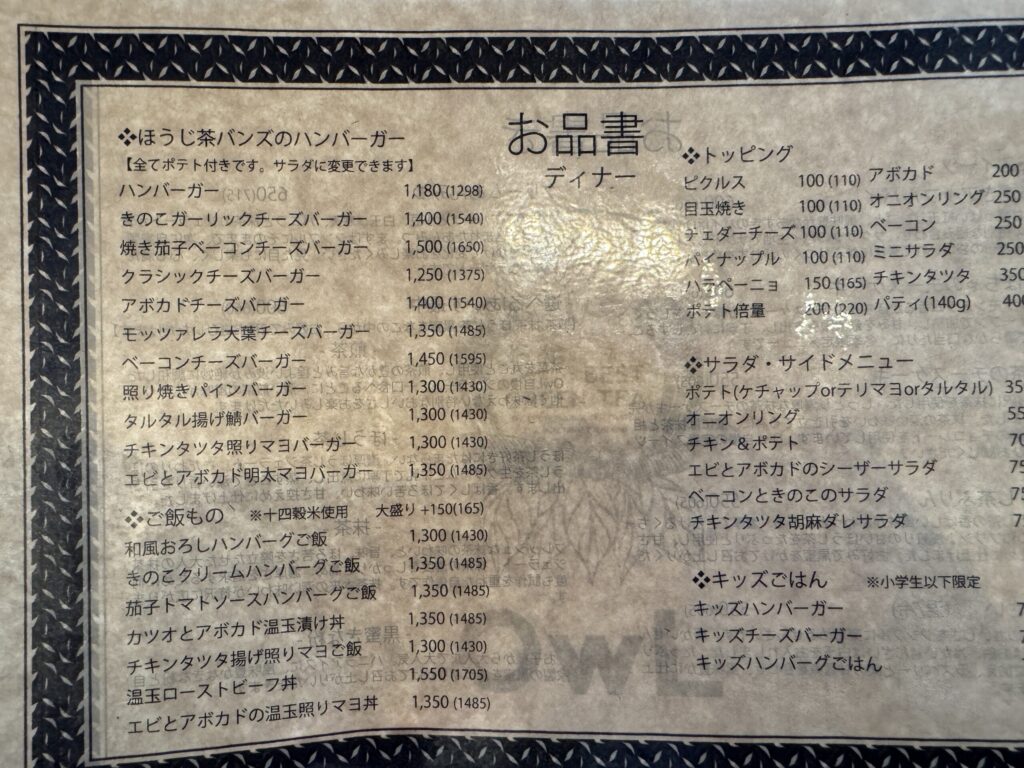 お品書
ディナー
❖ほうじ茶バンズのハンバーガー
【全てポテト付きです。サラダに変更できます】
ハンバーガー 1,180 (1298)
きのこガーリックチーズバーガー 1,400 (1540)
焼き茄子ベーコンチーズバーガー 1,500 (1650)
クラシックチーズバーガー 1,250 (1375)
アボカドチーズバーガー 1,400 (1540)
モッツァレラ大葉チーズバーガー 1,350 (1485)
ベーコンチーズバーガー 1,450 (1595)
照り焼きパインバーガー 1,300 (1430)
タルタル揚げ鯖バーガー 1,300 (1430)
チキンタツタ照りマヨバーガー 1,300 (1430)
エビとアボカド明太マヨバーガー 1,350 (1485)
❖ご飯もの ※十四穀米使用 大盛り+150(165)
和風おろしハンバーグご飯 1,300 (1430)
きのこクリームハンバーグご飯 1,350 (1485)
茄子トマトソースハンバーグご飯 1,350 (1485)
カツオとアボカド温玉漬け丼 1,350 (1485)
チキンタツタ揚げ照りマヨご飯 1,300 (1430)
温玉ローストビーフ丼 1,550 (1705)
エビとアボカドの温玉照りマヨ丼 1,350 (1485)
❖トッピング
ピクルス 100 (110)
目玉焼き 100 (110)
チェダーチーズ 100 (110)
パイナップル 100 (110)
ハラペーニョ 150 (165)
ポテト倍量 200 (220)
アボカド 200
オニオンリング 250
ベーコン 250
ミニサラダ 250
チキンタツタ 350
パティ(140g) 400
❖サラダ・サイドメニュー
ポテト(ケチャップorテリマヨorタルタル)
オニオンリング
チキン＆ポテト
エビとアボカドのシーザーサラダ
ベーコンときのこのサラダ
チキンタツタ胡麻ダレサラダ
❖キッズごはん ※小学生以下限定
キッズハンバーガー
キッズチーズバーガー
キッズハンバーグごはん